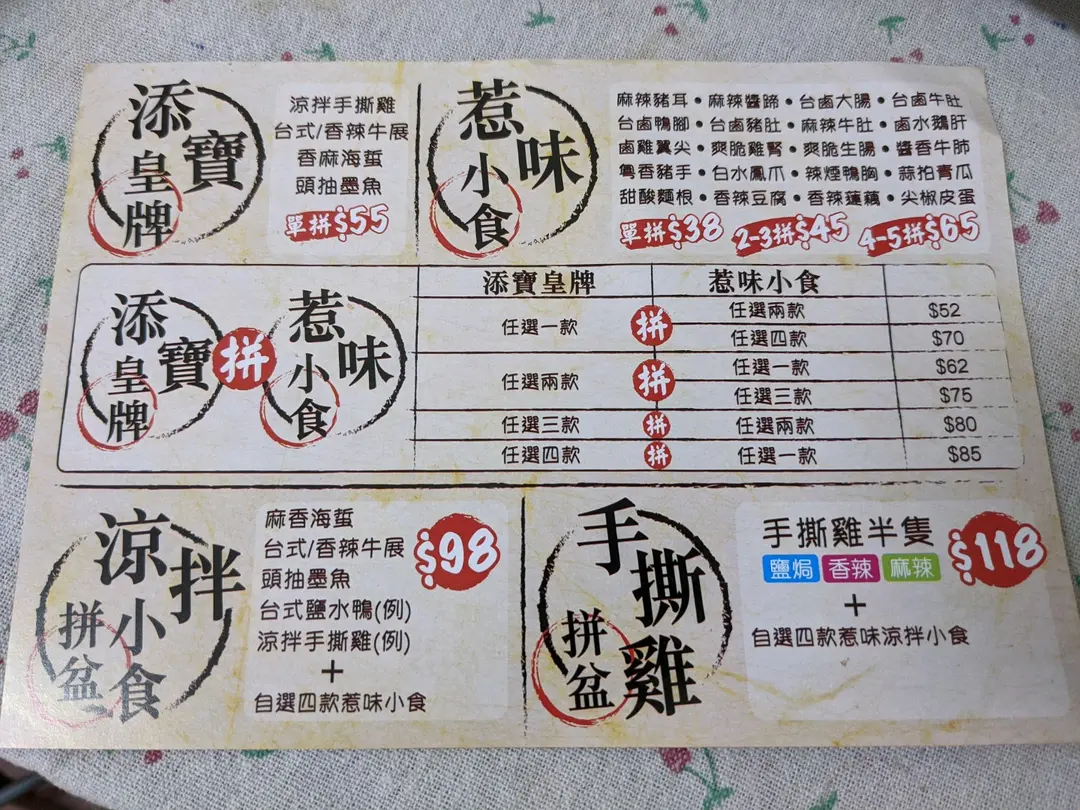 添寶皇牌
涼拌手撕雞
台式/香辣牛展
香麻海蜇
頭抽墨魚
單拼$55
惹味小食
麻辣豬耳•麻辣醬蹄•台鹵大腸•台鹵牛肚
台鹵鴨腳•台鹵豬肚•麻辣牛肚•鹵水鵝肝
鹵雞翼尖•爽脆雞腎•爽脆生腸•醬香牛肺
粵香豬手•白水鳳爪•辣煙鴨胸•蒜拍青瓜
甜酸麵根•香辣豆腐•香辣蓮藕•尖椒皮蛋
單拼$38 2-3拼$45 4-5拼$65
添寶皇牌 拼 惹味小食
添寶皇牌 惹味小食
任選一款 拼 任選兩款 $52
任選四款 $70
任選兩款 拼 任選一款 $62
任選三款 $75
任選三款 拼 任選兩款 $80
任選四款 拼 任選一款 $85
涼拌小食拼盆
麻香海蜇
台式/香辣牛展
頭抽墨魚
台式鹽水鴨(例)
涼拌手撕雞(例)
+
自選四款惹味小食
$98
手撕雞拼盆
手撕雞半隻
鹽焗 香辣 麻辣
+
自選四款惹味涼拌小食
$118